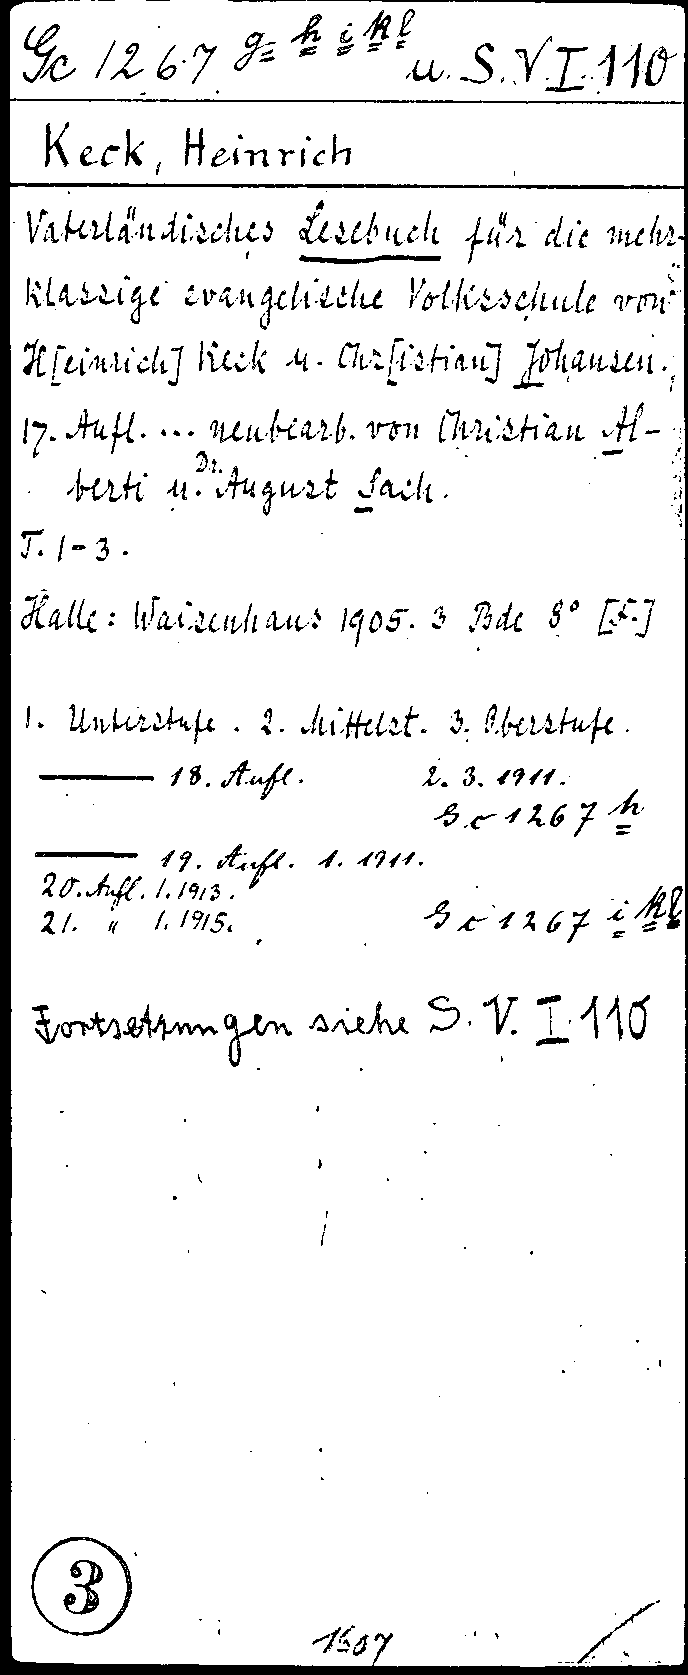 Gc 1267 g h i k l u. S. V I. 110
Keck, Heinrich
Vaterländisches Lesebuch für die mehr-
klassige evangelische Volksschule von
H[einrich] Keck u. Chr[istian] Johansen.
17. Aufl. ... neubearb. von Christian Al-
berti u. Dr. August Sach.
T. 1-3.
Halle: Waisenhaus 1905. 3 Bde 8° [F.]
1. Unterstufe. 2. Mittelst. 3. Oberstufe.
—— 18. Aufl. 2. 3. 1911.
Gc 1267 h
—— 19. Aufl. 1. 1911.
20. Aufl. 1. 1913.
21. " 1. 1915. Gc 1267 i k l
Fortsetzungen siehe S. V. I. 110
3
1607